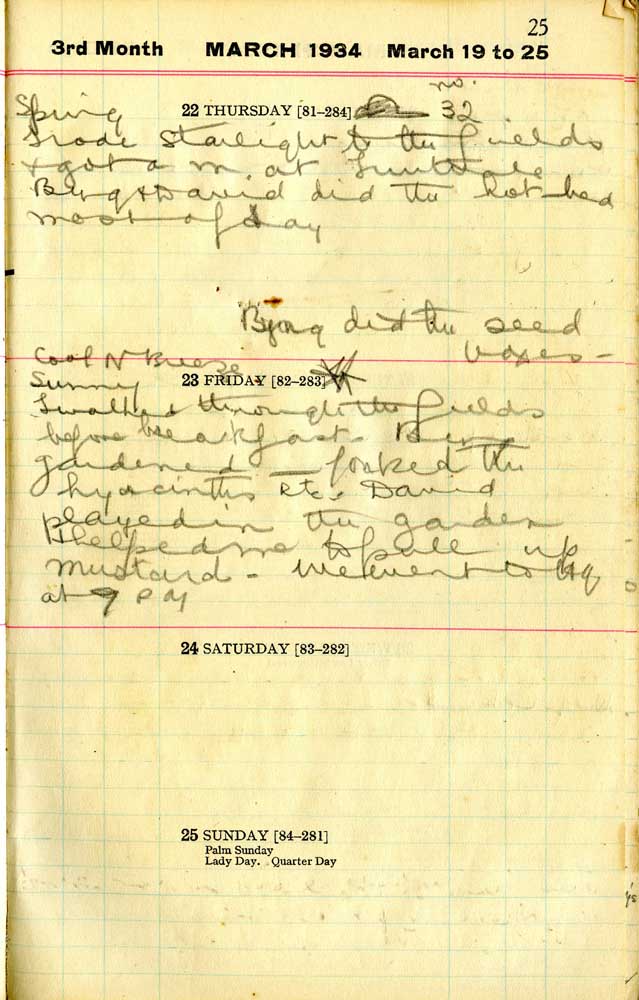 25
3rd Month MARCH 1934 March 19 to 25
no.
Spring 22 THURSDAY [81–284] 32
I rode Starlight to the fields
& got a m. at
Byng & David did the hot bed
most of day
Byng did the seed
boxes –
Cool N Breeze
Sunny 23 FRIDAY [82–283]
I walked through the fields
before breakfast. Byng
gardened – forked the
hyacinths etc. David
played in the garden
& helped me to pull up
mustard – we went to
at 9 P M
24 SATURDAY [83–282]
25 SUNDAY [84–281]
Palm Sunday
Lady Day. Quarter Day